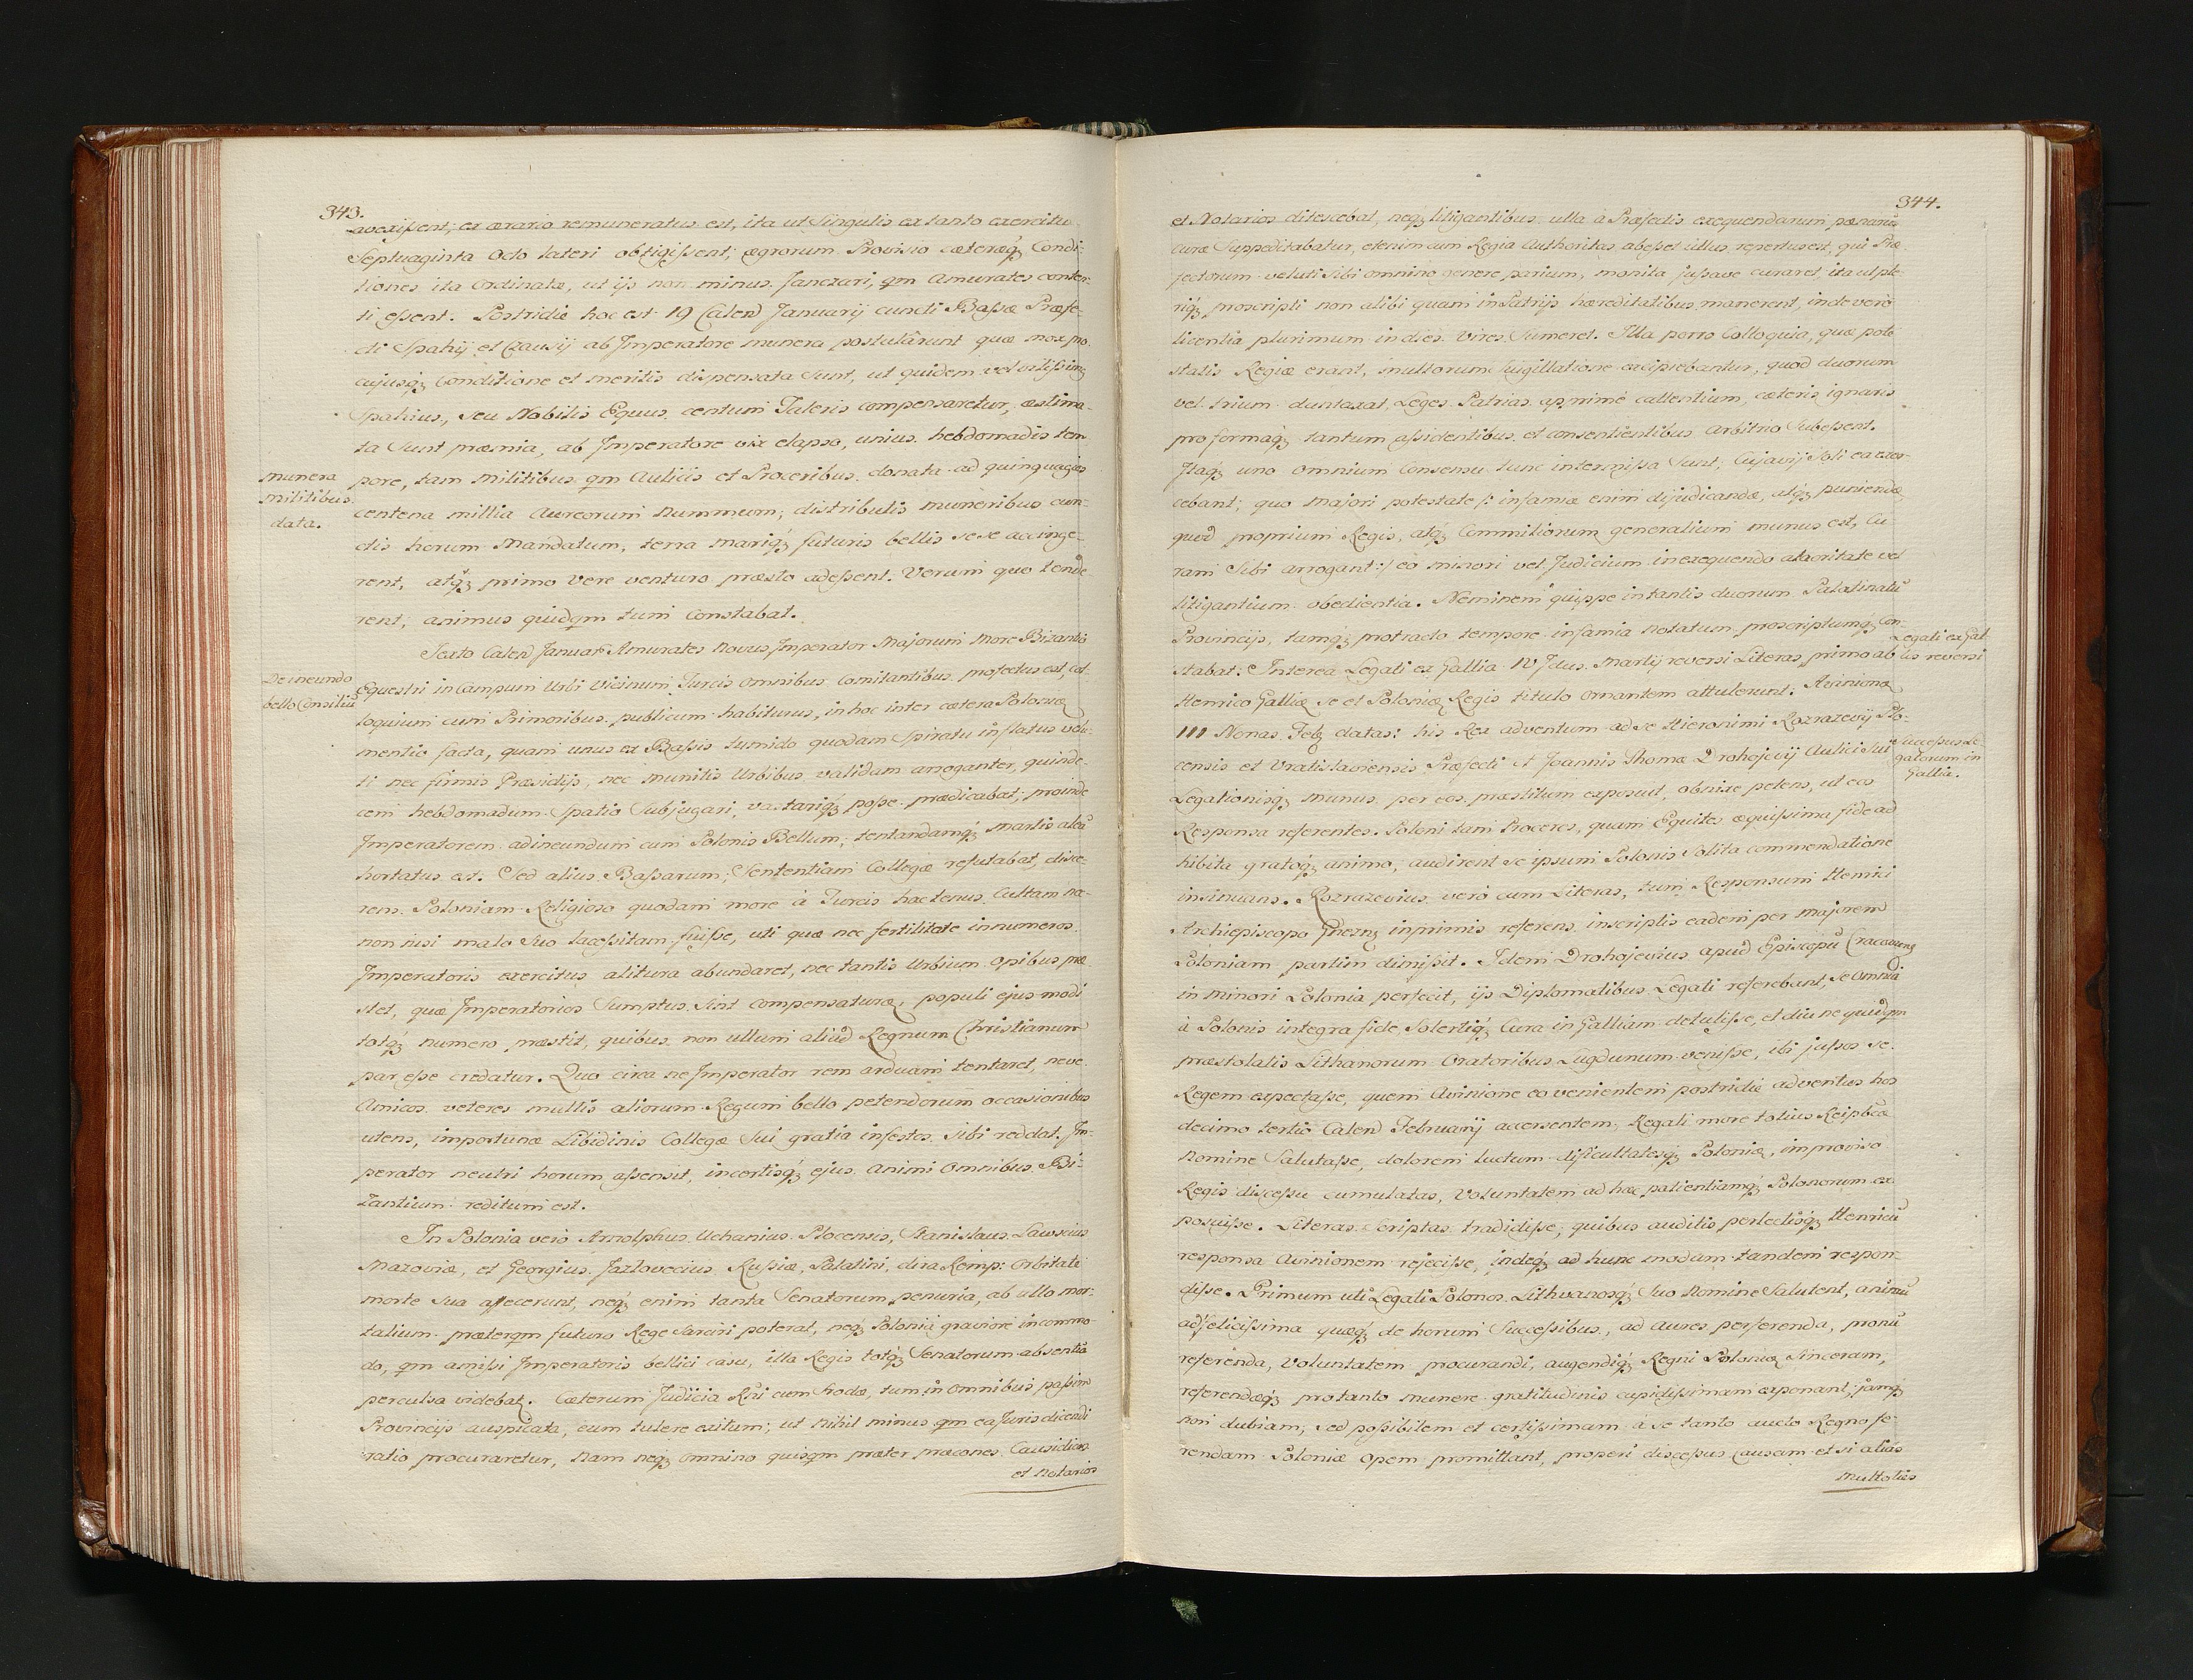 343.
avexissent; ex ærario remuneratus est, ita ut Singulis ex tanto exercitu
Septuaginta Octo tateri obtigissent; ægrorum Provisio cæteræq́ꝫ Condi-
tiones ita Ordinatæ, ut ijs non minus Janczari, qm Amurates conten-
ti essent. Postridie hoc est 19 Calend Januarij cuncti Bassæ Præfe-
cti Spahij et Czausij ab Imperatore munera postulârunt quæ mox pro
cujusqꝫ Conditione et meritis dispensata Sunt, ut quidem vel vilissimꝫ
Spahius, seu Nobilis Eques centum Taleris compensaretur, æstima-
ta Sunt præmia, ab Imperatore vix elapso, unius hebdomadis tem
munera
militibus
data.
pore, tam militibus qm Aulicis et Proceribus donata ad quinquagies
centena millia Aureorum Nummum; distributis muneribus cun-
ctis horum Mandatum, terra mariq́ꝫ futuris bellis sese accinge-
rent, atq́ꝫ primo Vere venturo præsto adessent. Verum quo tende
rent, animus quidqm tum Constabat.
Sexto Calend Januar Amurates Novus Imperator Majorum More Bizantio
De ineundo
bello Consiliũ
Equestri in Campum Urbi Vicinum Turcis omnibus Comitantibus profectus est, Col-
loquium cum Primoribus publicum habiturus, in hoc inter cætera Poloniæ
mentio facta, quam unus ex Bassis tumido quodam Spiratu inflatus velu-
ti nec firmis Præsidijs, nec munitis Urbibus validam arroganter, quinde-
cem hebdomadum Spatio Subjugari, vastariq́ꝫ posse prædicabat; proinde
Imperatorem ad ineundum cum Polonis Bellum, tentandamq́ꝫ Martis aleã
hortatus est. Sed alius Bassarum, Sententiam Collegæ refutabat, disse-
rens Poloniam Religioso quodam more à Turcis hactenus Cultam nec
non nisi malo Suo lacessitam fuisse, uti quæ nec fertilitate innumeros
Imperatoris exercitus alitura abundaret, nec tantis Urbium opibus præ
stet, quæ Imperatorios Sumptus Sint compensaturæ, populi ejus modi
totq́ꝫ numero præstit, quibus non ullum aliud Regnum Christianum
par esse credatur. Quo circa ne Imperator rem arduam tentaret, neve
Amicos veteres multis aliorum Regum bello petendorum occasionibus
utens, importunæ Libidinis Collegæ Sui gratia infestos Sibi reddat. Im-
perator neutri horum assensit, incertisq́ꝫ ejus Animi Omnibus Bi-
zantium reditum est.
In Polonia verò Arnolphus Uchanius Plocensis, Stanislaus Lawscius
Mazoviæ, et Georgius Jazlovecius Russiæ, Palatini, dira Remp: Orbitate
morte Sua affecerunt, neq́ꝫ enim tanta Senatorum penuria, ab ullo mor-
talium præterqm futuro Rege Sarciri poterat, neq́ꝫ Polonia graviore incommo-
do, qm amissi Imperatoris bellici casu, illa Regis totq́ꝫ Senatorum absentiâ
perculsa videbatꝫ. Cæterum Judicia Rñi cum Srodæ, tum in omnibus passim
Provincijs auspicata, eum tulere exitum; ut nihil minus qm ea Juris dicendi
ratio procuraretur, Nam neqꝫ omnino quisqm præter præcones Causidicos
et Notarios
344.
et Notarios ditescebat, neqꝫ litigantibus ulla à Præfectis exequendarum pænarũ
curæ Suppeditabatur, etenim cum Regia Authoritas abesset ullus repertus est, qui Præ-
fectorum veluti Sibi omnino genere parium, monita jussave curaret, ita ut ple-
riqꝫ proscripti non alibi quam in Patrijs hæreditatibus manerent, inde verò
licentia plurimum in dies Vires Sumeret. Illa porro Colloquia, quæ pote
statis Regiæ erant, multorum Suigillatione excipiebantur, quod duorum
vel trium duntaxat, Leges Patrias apprimè callentium, cæteris ignaris
pro formaq́ꝫ tantum assidentibus et consentientibus Arbitrio Subessent.
Itaq́ꝫ uno Omnium Consensu tunc intermissa Sunt; Cujavij Soli ea exer-
cebant; quo majori potestate /: infamiæ enim dijudicandæ, atq́ꝫ puniendæ
quod proprium Regis, atq́ꝫ Commitiorum generalium munus est, Cu-
ram Sibi arrogant:/ eò minori vel Judicium in exequendo alacritate vel
litigantium obedientia. Neminem quippe in tantis duorum Palatinatũ
Provincijs, tamq́ꝫ protracto tempore infamia Notatum proscriptumq́ꝫ Con-
Legati ex Gal
lis reversi
stabat. Interea Legati ex Gallia IV Idus Martij reversi Literas, primo ab
Henrico Galliæ se et Poloniæ Regis titulo Ornantem attulerunt. Avinionæ
III Nonas Febꝫ datas: his Rex adventum ad se Hieronimi Rozrazevij Plo-
Successus Le
gatorum in
Gallia.
censis et Vratislaviensis Præfecti et Joannis Thomæ Drohojevij Aulici Sui
Legationisq́ꝫ munus per eos præstitum exposuit, obnixe petens, ut eos
Responsa referentes. Poloni tam Proceres, quam Equites æquissima fide ad
hibita gratoq́ꝫ animo, audirent se ipsum Polonis Solita commendatione
insinuans. Rozrazevius verò cum Literas, tum Responsum Henrici
Archiepiscopo Gneznꝫ inprimis referens, inscriptis eadem per majorem
Poloniam partim dimisit. Idem Drohojevius apud Episcopũ Cracovieng
in minori Polonia perfecit, ijs Diplomatibus Legati referebant, Se Omnia
à Polonis integra fide Solertiq́ꝫ Cura in Galliam detulisse, et diu ne quidqm
præstolatis Lithanorum Oratoribus Lugdunum venisse, ibi jussos se
Regem expectasse, quem Avinione eo venientem postridie adventus hos
decimo tertio Calend Februarij accersentem, Regali more totius Reipbcæ
Nomine Salutasse, dolorem luctum dificultatesq́ꝫ Poloniæ, improviso
Regis discessu cumulatas, Voluntatem ad hæc patientiamq́ꝫ Polonorum ex
posuisse. Literas Scriptas tradidisse; quibus auditis perlectisq́ꝫ Henricũ
responsa Avinionem rejecisse, indeq́ꝫ ad hunc modum tandem respon-
disse. Primum uti Legati Polonos Lithvanosq́ꝫ Suo Nomine Salutent, animũ
ad felicissima quæq́ꝫ de horum Successibus, ad Aures perferenda, pronũ
referenda, Voluntatem procurandi, augendiq́ꝫ Regni Poloniæ Sinceram,
referendæq́ꝫ pro tanto munere gratitudinis cupidissimam exponant; jamq́ꝫ
non dubiam, sed possibilem et certissimam à se tanto aucto Regno fe-
rendam Poloniæ opem promittant, properi discessus Causam et si alias
multoties